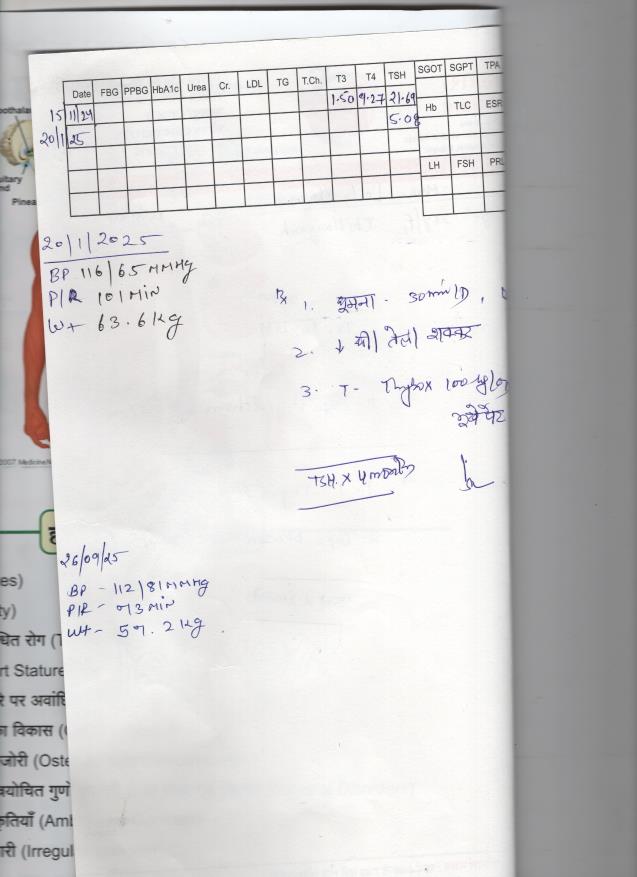 Date FBG PPBG HbA1c Urea Cr. LDL TG T.Ch. T3 T4 TSH SGOT SGPT TPA
15/11/24 1.50 9.27 21.69
Hb TLC ESR
20/1/25 5.08
LH FSH PRL
20/1/2025
BP 116/65 MMHg
P/R 101 MIN
Wt 63.6 Kg
Rx 1. घूमना - 30 min/D,
2. ↓ घी/ तेल/ शक्कर
3. T- Thyrox 100
TSH x 4 month
26/09/25
BP - 112/81 MMHg
P/R - 73 MIN
Wt - 57.2 Kg
pothala
uitary
nd
Pinea
2007 Medicine
es)
ty)
धित रोग (T
rt Stature
रे पर अवांछि
ा विकास (
जोरी (Oste
वयोचित गुणो
कृतियाँ (Ambi
ारी (Irregul